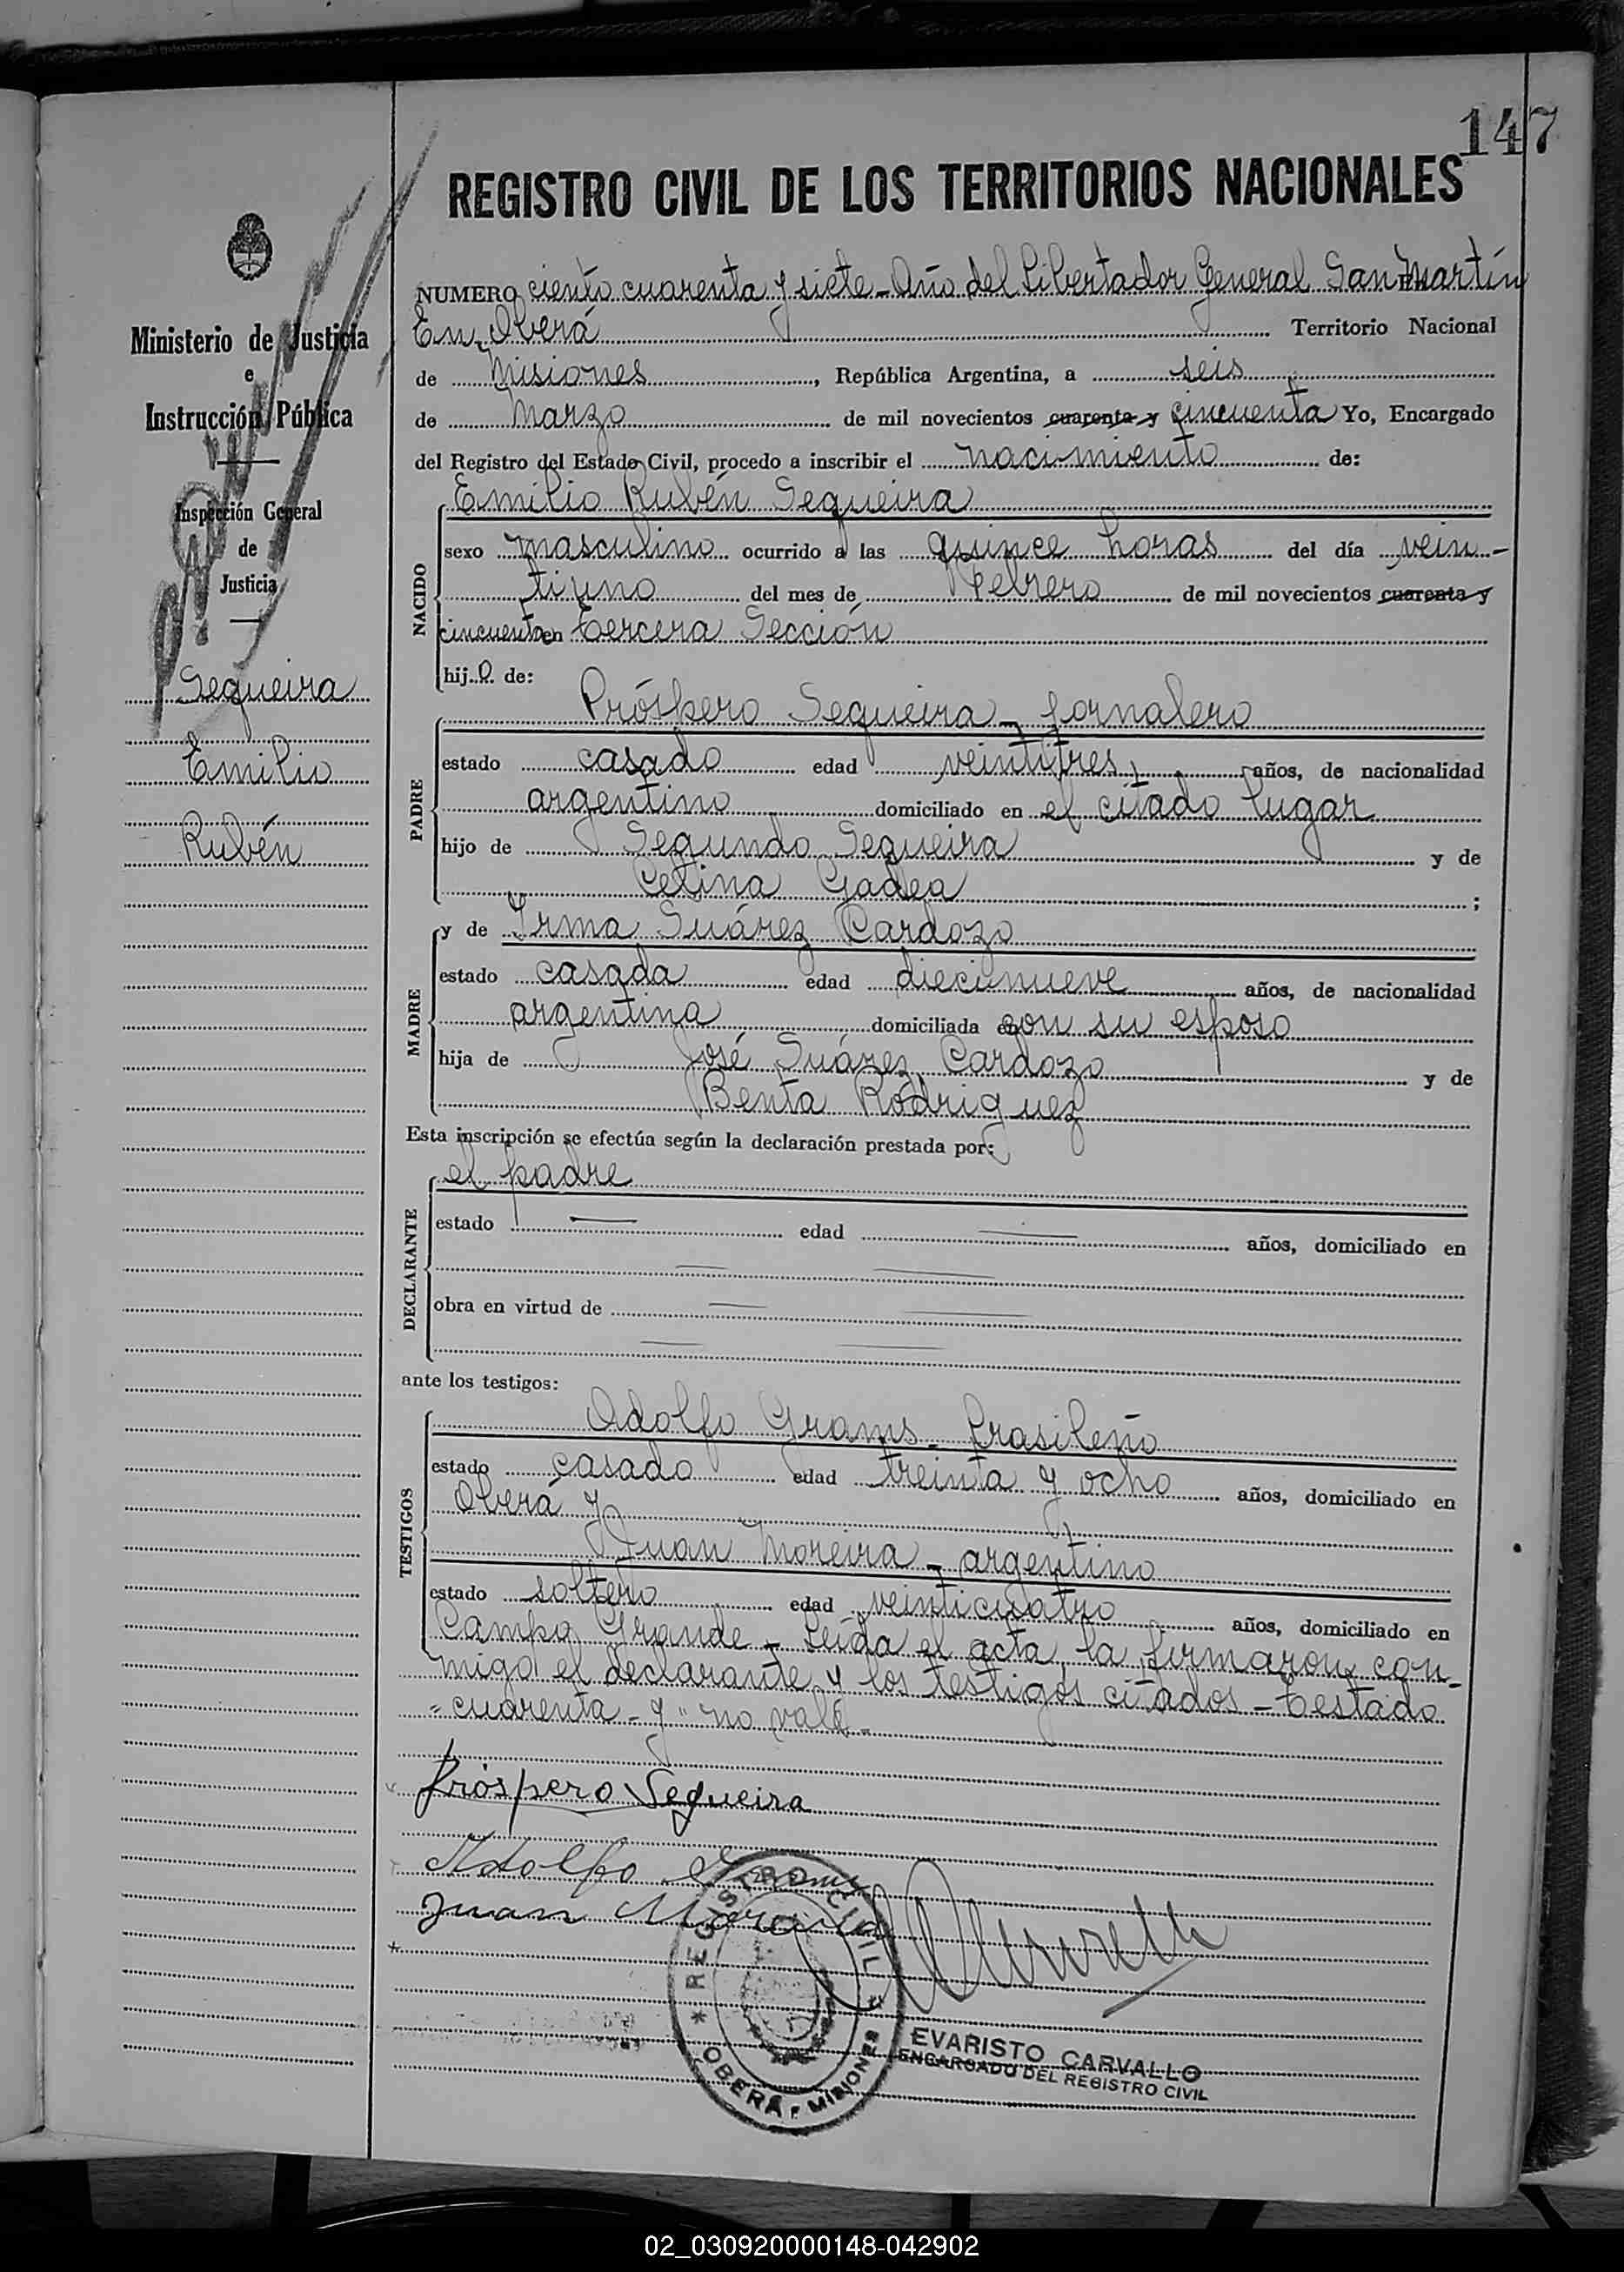 147
REGISTRO CIVIL DE LOS TERRITORIOS NACIONALES
Ministerio de Justicia
e
Instrucción Pública
Inspección General
de
Justicia
Sequeira
Emilio
Rubén
NUMERO ciento cuarenta y siete - Año del Libertador General San Martín
En Oberá Territorio Nacional
de Misiones, República Argentina, a seis
de Marzo de mil novecientos cuarenta y cincuenta Yo, Encargado
del Registro del Estado Civil, procedo a inscribir el nacimiento de:
Emilio Rubén Sequeira
NACIDO
sexo masculino ocurrido a las quince horas del día vein-
tiuno del mes de Febrero de mil novecientos cuarenta y
cincuenta en Tercera Sección
hijo de:
Próspero Sequeira - jornalero
PADRE
estado casado edad veintitres años, de nacionalidad
argentino domiciliado en el citado lugar
hijo de Segundo Sequeira y de
Celina Gadea ;
MADRE
y de Irma Suárez Cardozo
estado casada edad diecinueve años, de nacionalidad
argentina domiciliada en con su esposo
hija de José Suárez Cardozo y de
Benta Rodriguez
Esta inscripción se efectúa según la declaración prestada por:
DECLARANTE
el padre
estado — edad — años, domiciliado en
obra en virtud de
ante los testigos:
TESTIGOS
Adolfo Grams - brasileño
estado casado edad treinta y ocho años, domiciliado en
Oberá y
Juan Moreira - argentino
estado soltero edad veinticuatro años, domiciliado en
Campo Grande - Leída el acta, la firmaron con-
migo el declarante y los testigos citados - Testado
"cuarenta - y" no vale -
Próspero Sequeira
Adolfo Grams
Juan Moreira
* REGISTRO CIVIL *
OBERÁ - MISIONES
EVARISTO CARVALLO
ENCARGADO DEL REGISTRO CIVIL
02_030920000148-042902